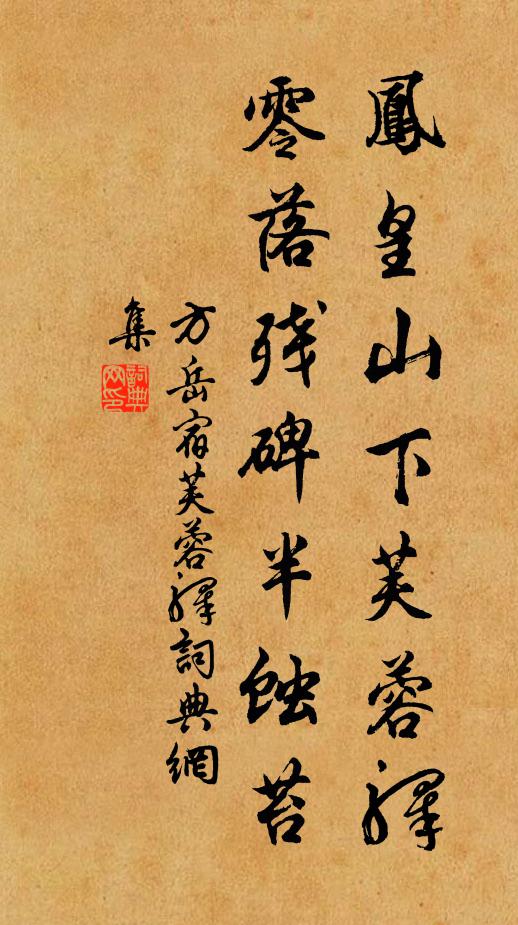 鳳皇山下芙蓉驛
零落残碑半蝕苔
方岳宿芙蓉驛詞典網
集
詞典網印